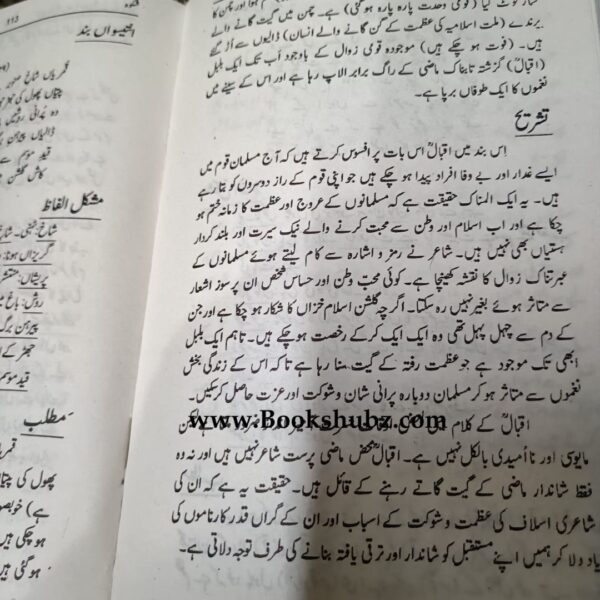 ساز ٹوٹ گیا (قومی وحدت پارہ پارہ ہوگئی) ہے۔ چمن میں گیت گانے والے
پرندے (ملت اسلامیہ کی عظمت کے گن گانے والے انسان) ڈالیوں سے اُڑ گئے
ہیں۔ (فوت ہو چکے ہیں) موجودہ قومی زوال کے باوجود اب تک ایک بلبل
(اقبال) گزشتہ تابناک ماضی کے راگ برابر الاپ رہا ہے اور اس کے سینے میں
نغموں کا ایک طوفاں برپا ہے۔
تشریح
اس بند میں اقبالؒ اس بات پر افسوس کرتے ہیں کہ آج مسلمان قوم میں
ایسے غدار اور بے وفا افراد پیدا ہو چکے ہیں جو اپنی قوم کے راز دوسروں کو بتا رہے
ہیں۔ یہ ایک المناک حقیقت ہے کہ مسلمانوں کے عروج اور عظمت کا زمانہ ختم ہو
چکا ہے اور اب اسلام اور وطن سے محبت کرنے والے نیک سیرت اور بلند کردار
ہستیاں بھی نہیں ہیں۔ شاعر نے رمز و اشارہ سے کام لیتے ہوئے مسلمانوں کے
عبرتناک زوال کا نقشہ کھینچا ہے۔ کوئی محب وطن اور حساس شخص ان پرسوز اشعار
سے متاثر ہوئے بغیر نہیں رہ سکتا۔ اگرچہ گلشن اسلام خزاں کا شکار ہو چکا ہے اور جن
کے دم سے چہل پہل تھی وہ ایک ایک کر کے رخصت ہو چکے ہیں۔ تاہم ایک بلبل
ابھی تک موجود ہے جو عظمت رفتہ کے گیت سنا رہا ہے تاکہ اس کے زندگی بخش
نغموں سے متاثر ہو کر مسلمان دوبارہ پرانی شان و شوکت اور عزت حاصل کر سکیں۔
اقبالؒ کے کلام میں ہے لیکن
www.Bookshubz.com
مایوسی اور ناامیدی بالکل نہیں ہے۔ اقبالؒ محض ماضی پرست شاعر نہیں ہیں اور نہ وہ
فقط شاندار ماضی کے گیت گاتے رہنے کے قائل ہیں۔ حقیقت یہ ہے کہ ان کی
شاعری اسلاف کی عظمت و شوکت کے اسباب اور ان کے گراں قدر کارناموں کی
یاد دلا کر ہمیں اپنے مستقبل کو شاندار اور ترقی یافتہ بنانے کی طرف توجہ دلاتی ہے۔
شکوہ
113
بند
قمریاں شاخ صنوبر
پتیاں پھول کی
وہ پرانی روشیں
ڈالیاں پیرہن
قید موسم سے
کاش گلشن
مشکل الفاظ
گریزاں ہونا:
پریشاں:
روش: باغ
پیرہن برگ
جھڑ کے
قید موسم
مطلب
پھول کی پتیاں
ہے) خوبصو
ہو چکی ہیں
ہو گئی ہیں